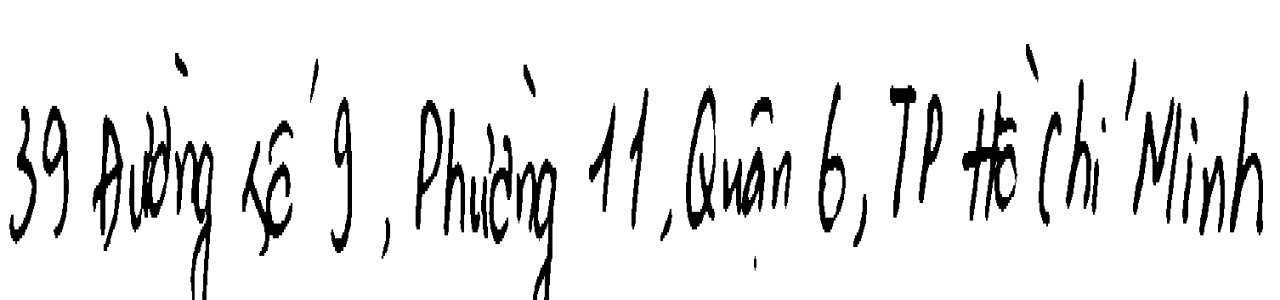 39 Đường Số 9, Phường 11, Quận 6, TP Hồ Chí Minh